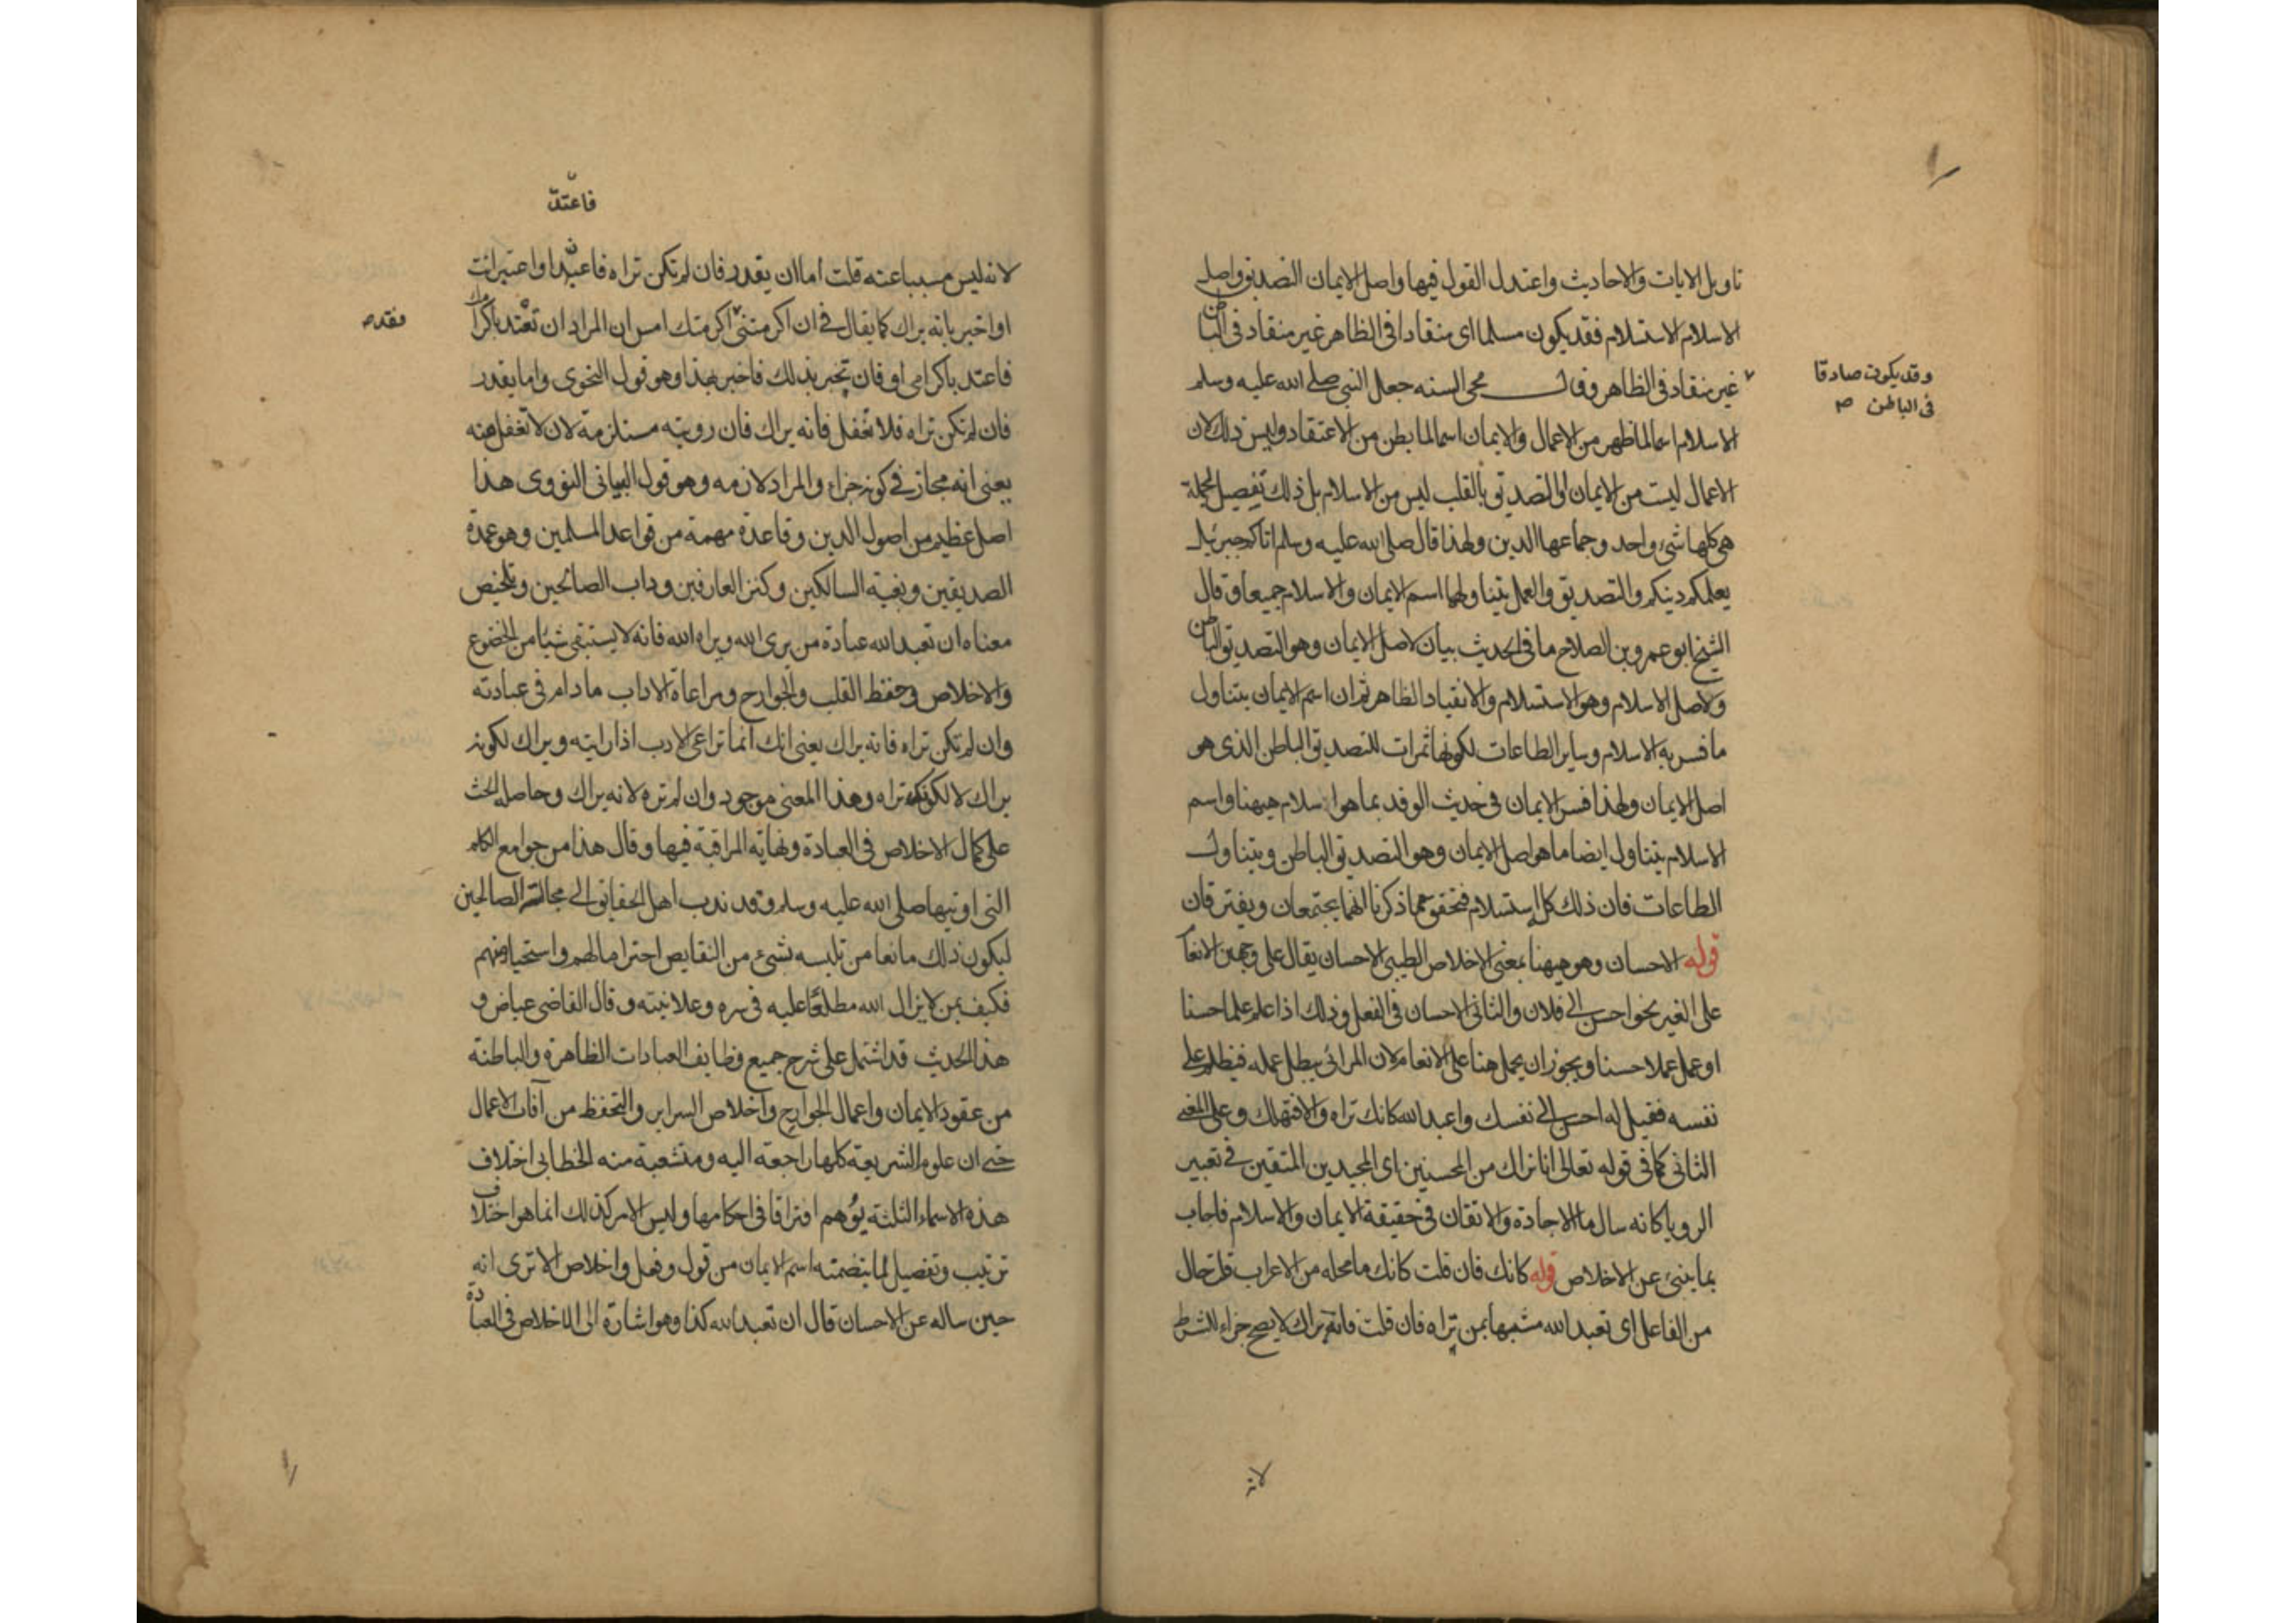 تاويل الايات والاحاديث واعتدل القول فيها واصل الايمان التصديق واصل
الاسلام الاستسلام فقد يكون مسلما اى منقادا فى الظاهر غير منقاد فى الباطن
غير منقاد فى الظاهر وقال محى السنه جعل النبى صلى الله عليه وسلم
وقد يكون صادقا
فى الباطن
الاسلام اسما لما ظهر من الاعمال والايمان اسما لما بطن من الاعتقاد وليس ذلك لان
الاعمال ليست من الايمان او التصديق بالقلب ليس من الاسلام بل ذلك تفصيل لجملة
هى كلها شئ واحد وجماعها الدين ولهذا قال صلى الله عليه وسلم اتاكم جبرئيل
يعلمكم دينكم والتصديق والعمل يتناولهما اسم الايمان والاسلام جميعا وقال
الشيخ ابو عمرو بن الصلاح ما فى الحديث بيان لاصل الايمان وهو التصديق الباطن
ولاصل الاسلام وهو الاستسلام والانقياد الظاهر ثم ان اسم الايمان يتناول
ما فسر به الاسلام وساير الطاعات لكونها ثمرات للتصديق الباطن الذى هو
اصل الايمان ولهذا فسر الايمان فى حديث الوفد بما هو الاسلام هيهنا واسم
الاسلام يتناول ايضا ما هو اصل الايمان وهو التصديق الباطن ويتناول
الطاعات فان ذلك كل استسلام فتحقق مما ذكرنا انهما يجتمعان ويفترقان
قوله الاحسان وهو هيهنا بمعنى الاخلاص الطيبى الاحسان يقال على وجهين الانعام
على الغير نحو احسن الى فلان والثانى الاحسان فى الفعل وذلك اذا علم علما حسنا
او عمل عملا حسنا ويجوز ان يحمل هنا على الانعام لان المرائى يبطل عمله فيظلم على
نفسه فقيل له احسن الى نفسك واعبد الله كانك تراه والا فتهلك وعلى المعنى
الثانى كما فى قوله تعالى انا نراك من المحسنين اى المجيدين المتقنين فى تعبير
الرويا كانه سال ما الاجادة والاتقان فى حقيقة الايمان والاسلام فاجاب
بما ينبئ عن الاخلاص قوله كانك فان قلت كانك ما محله من الاعراب قلت حال
من الفاعل اى تعبد الله مشبها بمن تراه فان قلت فانه يراك لا يصح جزاء للشرط
لانه
فاعتد
لانه ليس مسببا عنه قلت اما ان يقدر فان لم تكن تراه فاعبد او اعتبر انت
او اخبر بانه يراك كما يقال فى ان اكرمتنى اكرمتك امس ان المراد ان تعتد باكرامك
فاعتد باكرامى او فان تخبر بذلك فاخبر بهذا وهو قول النحوى واما يقدر
فان لم تكن تراه فلا تغفل فانه يراك فان رويته مستلزمة لان لا تغفل عنه
يعنى انه مجاز فى كونه جزاء والمراد لازمه وهو قول البيانى النووى هذا
اصل عظيم من اصول الدين وقاعدة مهمة من قواعد المسلمين وهو عمدة
الصديقين وبغية السالكين وكنز العارفين وداب الصالحين وتلخيص
معناه ان تعبد الله عبادة من يرى الله ويراه الله فانه لا يستبقى شيئا من الخضوع
والاخلاص وحفظ القلب والجوارح ومراعاة الاداب ما دام فى عبادته
وان لم تكن تراه فانه يراك يعنى انك انما تراعى الادب اذا رايته ويراك لكونه
يراك لا لكونك تراه وهذا المعنى موجود وان لم تره لانه يراك وحاصله الحث
على كمال الاخلاص فى العبادة ونهاية المراقبة فيها وقال هذا من جوامع الكلم
التى اوتيها صلى الله عليه وسلم وقد ندب اهل الحقايق الى مجالسة الصالحين
ليكون ذلك مانعا من تلبسه بشئ من النقايص احتراما لهم واستحياء منهم
فكيف بمن لا يزال الله مطلعا عليه فى سره وعلانيته وقال القاضى عياض و
هذا الحديث قد اشتمل على شرح جميع وظايف العبادات الظاهرة والباطنة
من عقود الايمان واعمال الجوارح واخلاص السراير والتحفظ من آفات الاعمال
حتى ان علوم الشريعة كلها راجعة اليه ومتشعبة منه الخطابى اختلاف
هذه الاسماء الثلثة يوهم افتراقا فى احكامها وليس الامر كذلك انما هو اختلاف
ترتيب وتفصيل لما يتضمنه اسم الايمان من قول وفعل واخلاص الا ترى انه
حين ساله عن الاحسان قال ان تعبد الله كذا وهو اشارة الى الاخلاص فى العبادة